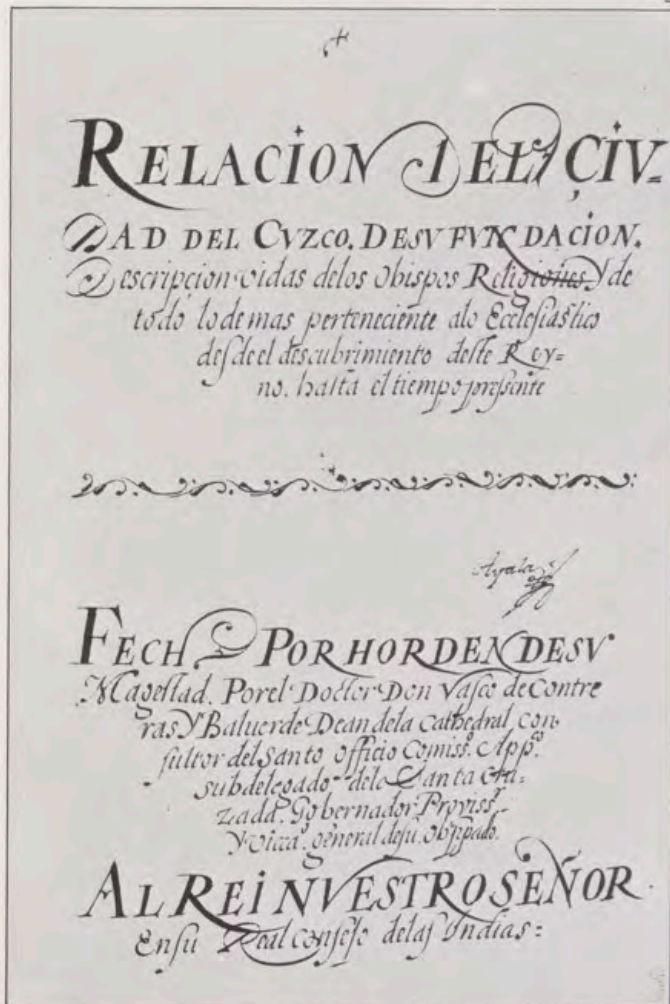 RELACION DELA ÇIV=
DAD DEL CVZCO. DESV FVNDACION.
Descripçion vidas delos obispos Religiones. y de
todo lo demas perteneciente alo Ecclesiastico
desde el descubrimiento deste Rey=
no. hasta el tiempo pressente
Ayala
FECHA POR HORDEN DESV
Magestad. Por el Doctor Don Vasco de Contre
ras Y Baluerde Dean dela cathedral, con-
sultor del Santo officio Comissº. Appº.
subdelegado dela Santa Cru-
zada. Gobernador Proviss.
Y vicaº. general desu. obispado.
AL REI NVESTRO SEÑOR
En su Real consejo delas yndias=